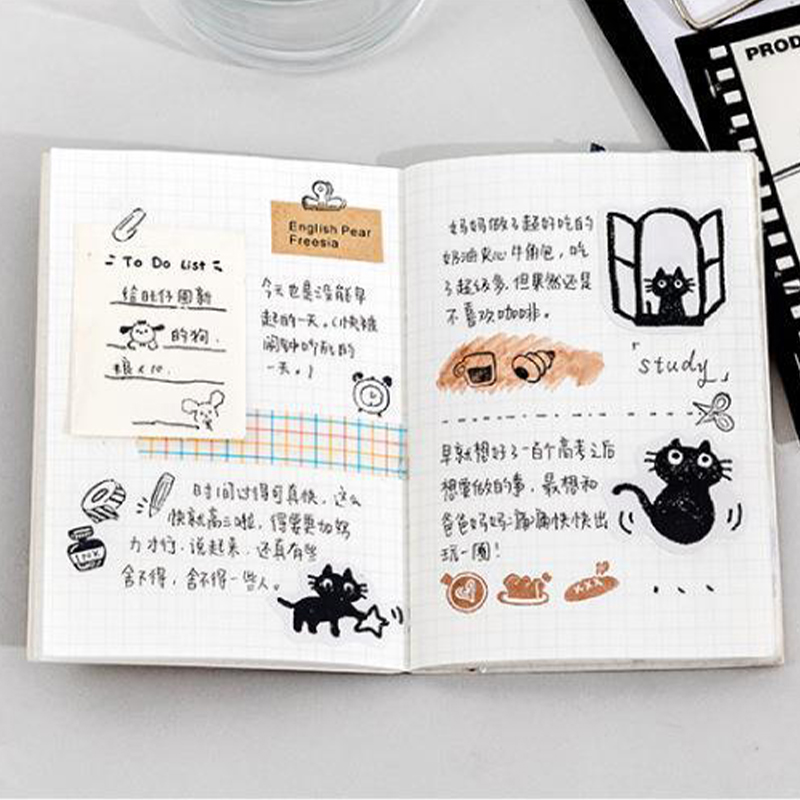 To Do List
给旺仔囤新
的狗
粮 x 10.
English Pear
Freesia
今天也是没能早
起的一天。(快被
闹钟吵死的
一天。)
时间过得可真快，这么
快就高三啦，得要更加努
力才行，说起来，还真有些
舍不得，舍不得一些人。
INK
妈妈做了超好吃的
奶油夹心牛角包，吃
了超级多，但果然还是
不喜欢咖啡。
「study」
早就想好了一百个高考之后
想要做的事，最想和
爸爸妈妈痛痛快快出
玩一圈！
XXX
PROD